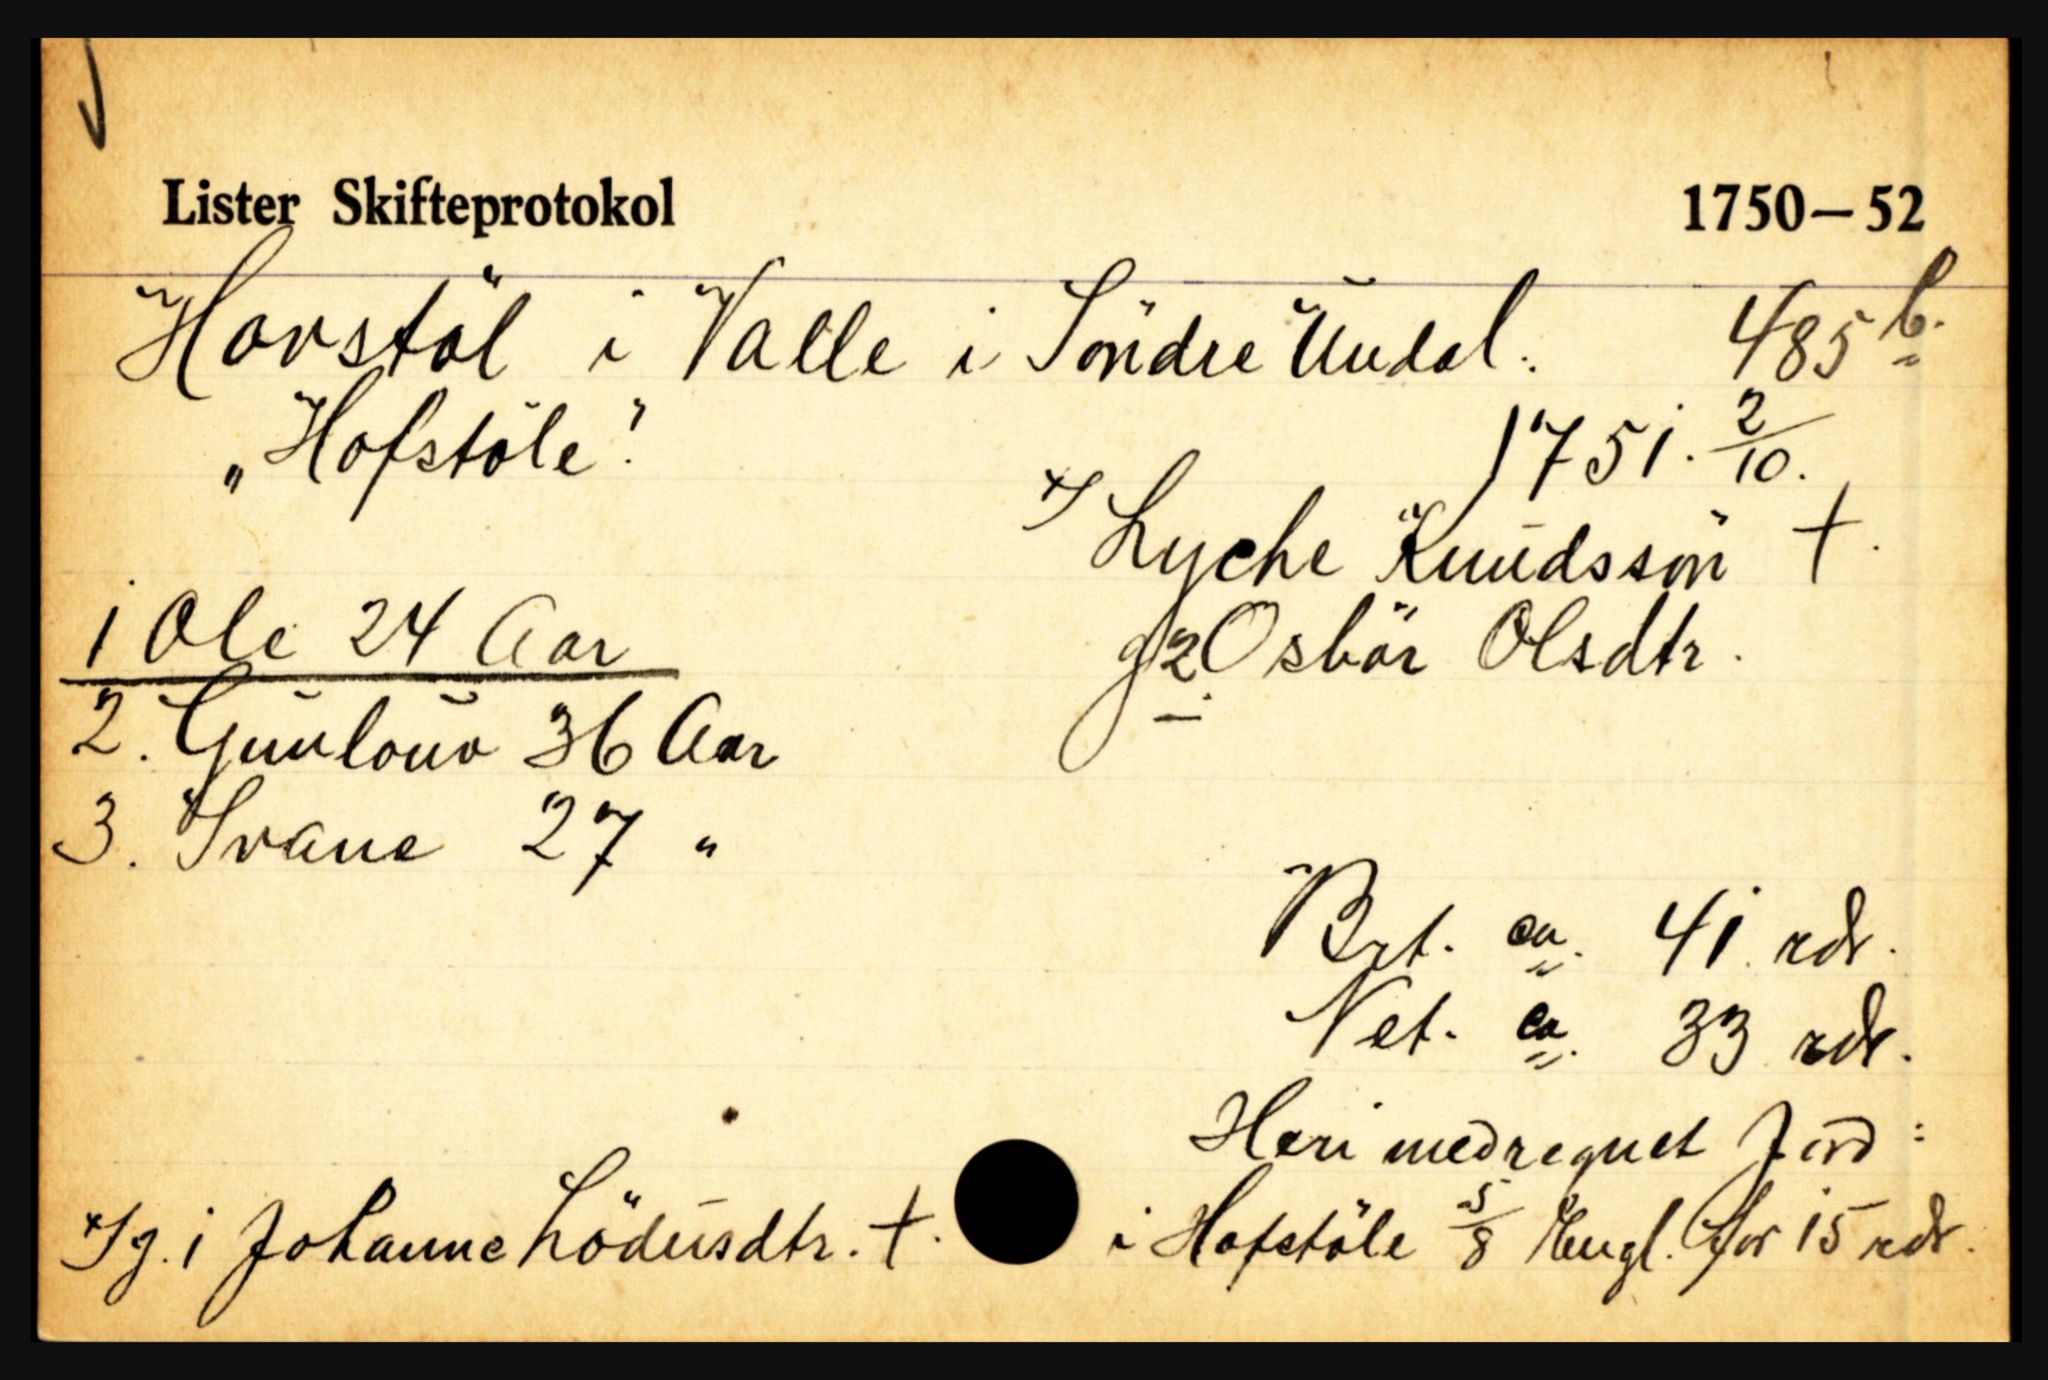 Lister Skifteprotokol 1750–52
Hovstöl i Valle i Söndre Undal. 485 b.
„Hofstöle". 1751. 2/10.
x/ Lyche Knudssön †.
1 Ole 24 Aar
g 2 Osbör Olsdtr.
2. Gunlouv 36 Aar
3. Svane 27 "
Brt. ca. 41 rdr.
Net. ca. 33 rdr.
Heri medregnet Jord:
i Hofstöle 5/8 Engl. for 15 rdr.
x/ g. 1 Johanne Lödusdtr. †.